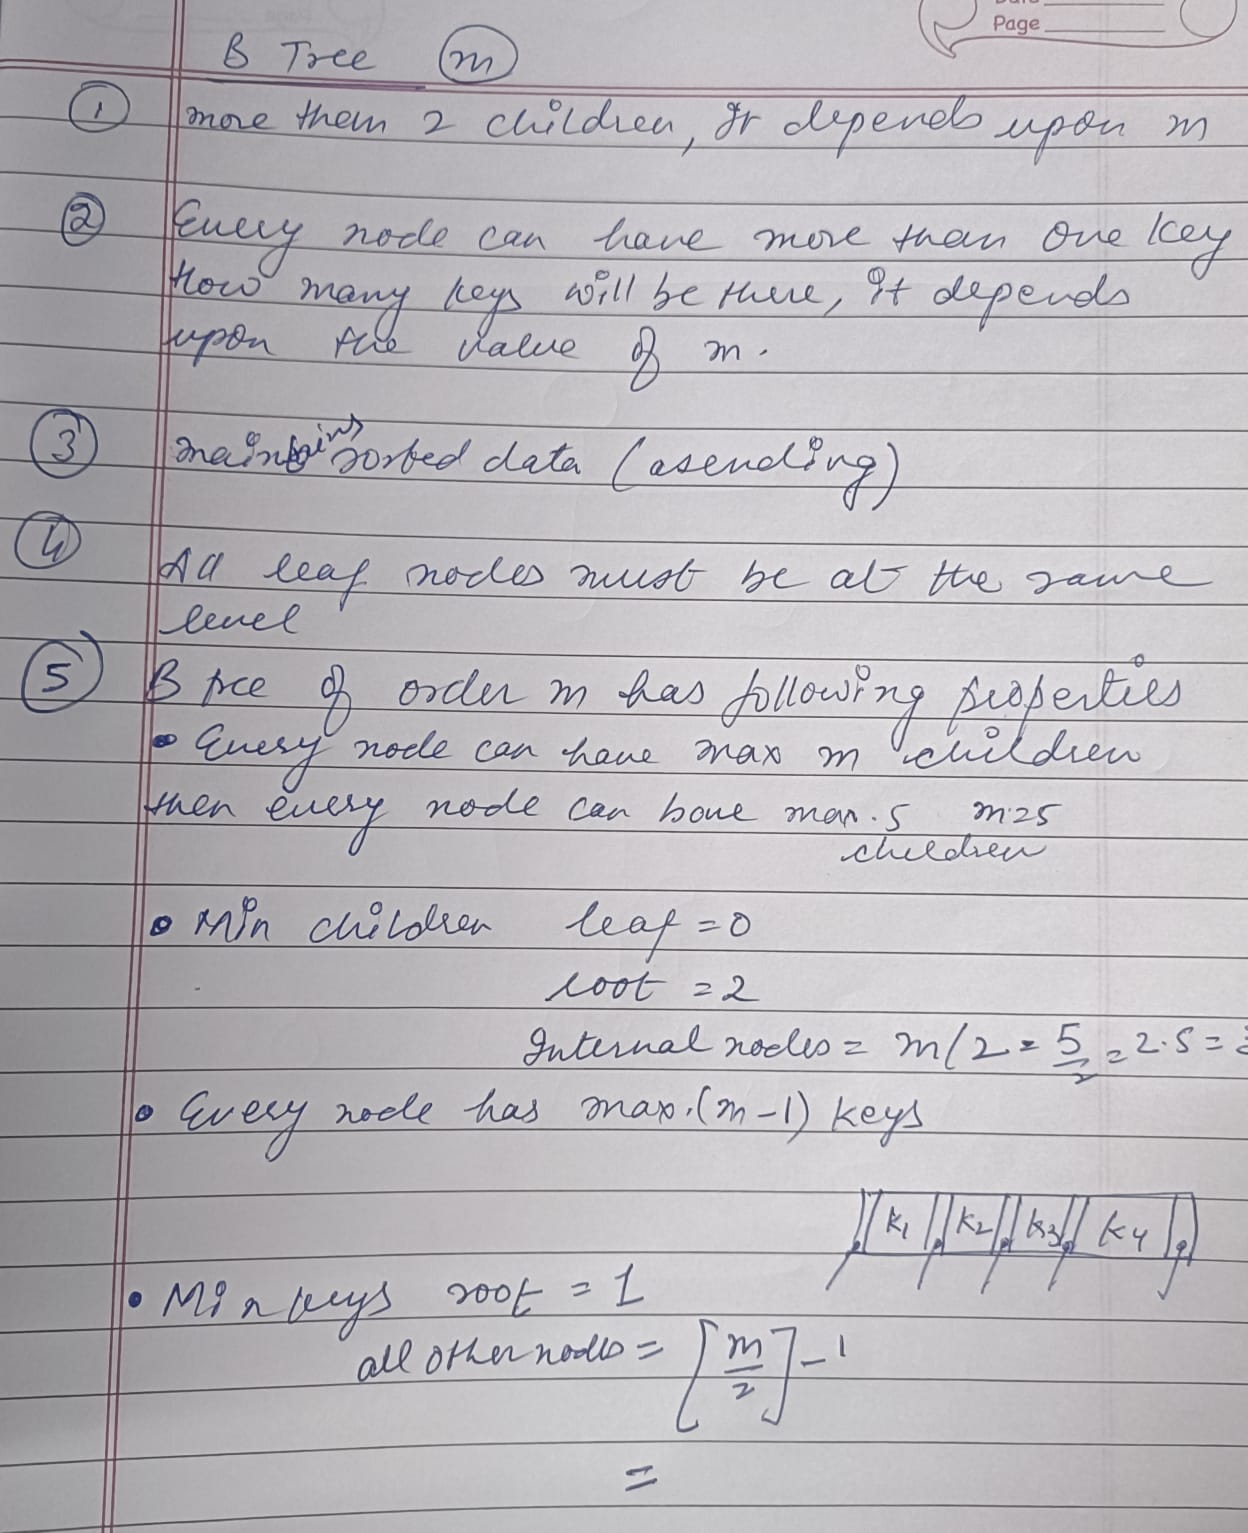 Page
B Tree m
1 more them 2 children, It depends upon m
2 Every node can have more than one key
How many keys will be there, it depends
upon the value of m.
3 maintains sorted data (asending)
4
All leaf nodes must be at the same
level
5 B tree of order m has following properties
• Every node can have max m children
then every node can have max. 5 m=5
children
• Min children leaf = 0
root = 2
Internal nodes = m/2 = 5/2 = 2.5 =
• Every node has max. (m-1) keys
k1 k2 k3 k4
• Min keys root = 1
all other nodes = [m/2] - 1
=